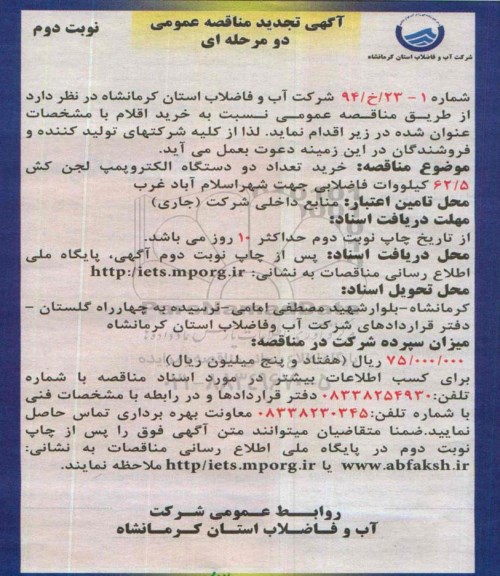 آگهی تجدید مناقصه عمومی
دو مرحله ای
نوبت دوم
شرکت آب و فاضلاب استان کرمانشاه
شماره ۱ - ۲۳/خ/۹۴ شرکت آب و فاضلاب استان کرمانشاه در نظر دارد
از طریق مناقصه عمومی نسبت به خرید اقلام با مشخصات
عنوان شده در زیر اقدام نماید. لذا از کلیه شرکتهای تولید کننده و
فروشندگان در این زمینه دعوت بعمل می آید.
موضوع مناقصه: خرید تعداد دو دستگاه الکتروپمپ لجن کش
۶۲/۵ کیلووات فاضلابی جهت شهر اسلام آباد غرب
محل تامین اعتبار: منابع داخلی شرکت (جاری)
مهلت دریافت اسناد:
از تاریخ چاپ نوبت دوم حداکثر ۱۰ روز می باشد.
محل دریافت اسناد: پس از چاپ نوبت دوم آگهی، پایگاه ملی
اطلاع رسانی مناقصات به نشانی: http:/iets.mporg.ir
محل تحویل اسناد:
کرمانشاه-بلوارشهید مصطفی امامی- نرسیده به چهارراه گلستان -
دفتر قراردادهای شرکت آب وفاضلاب استان کرمانشاه
میزان سپرده شرکت در مناقصه:
۷۵/۰۰۰/۰۰۰ ریال (هفتاد و پنج میلیون ریال)
برای کسب اطلاعات بیشتر در مورد اسناد مناقصه با شماره
تلفن: ۰۸۳۳۸۲۵۴۹۳۰ دفتر قراردادها و در رابطه با مشخصات فنی
با شماره تلفن: ۰۸۳۳۸۲۳۰۳۴۵ معاونت بهره برداری تماس حاصل
نمایید.ضمنا متقاضیان میتوانند متن آگهی فوق را پس از چاپ
نوبت دوم در پایگاه ملی اطلاع رسانی مناقصات به نشانی:
www.abfaksh.ir یا http/iets.mporg.ir ملاحظه نمایند.
روابط عمومی شرکت
آب و فاضلاب استان کرمانشاه